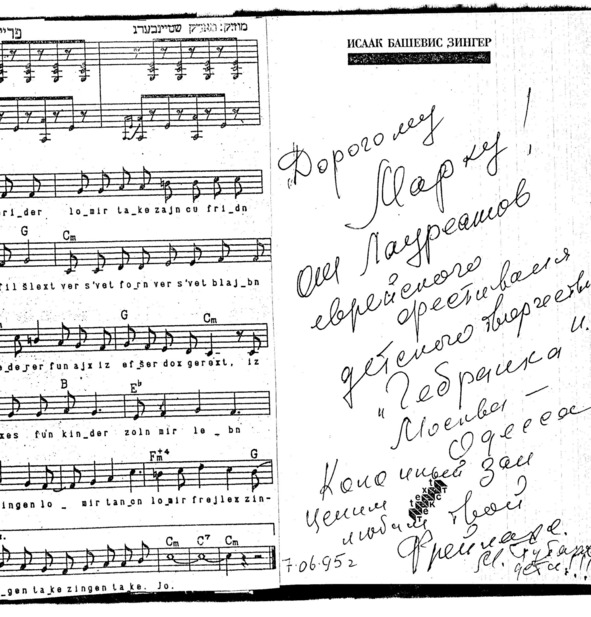 מוזיק: מאריק שטיינבערג
ri_der lo_mir ta_ke zajn cu fri_dn
G Cm
fil šlext ver s'vet fo_rn ver s'vet blaj_bn
G Cm
e_de_rer fun ajx iz ef_šer dox gerext, iz
B Eb
xes fun kin_der zoln mir le_bn
Fm+4 G
zingen lo_mir tan_cn lo_mir frejlex zin-
Cm C7 Cm
gen ta_ke zingen ta_ke. Jo.
ИСААК БАШЕВИС ЗИНГЕР
"Дорогому
Марку!
От Лауреатов
еврейского
фестиваля
детского творчества
Москва —
Одесса
Колонный Зал
ценим
любим твой
7.06.95г